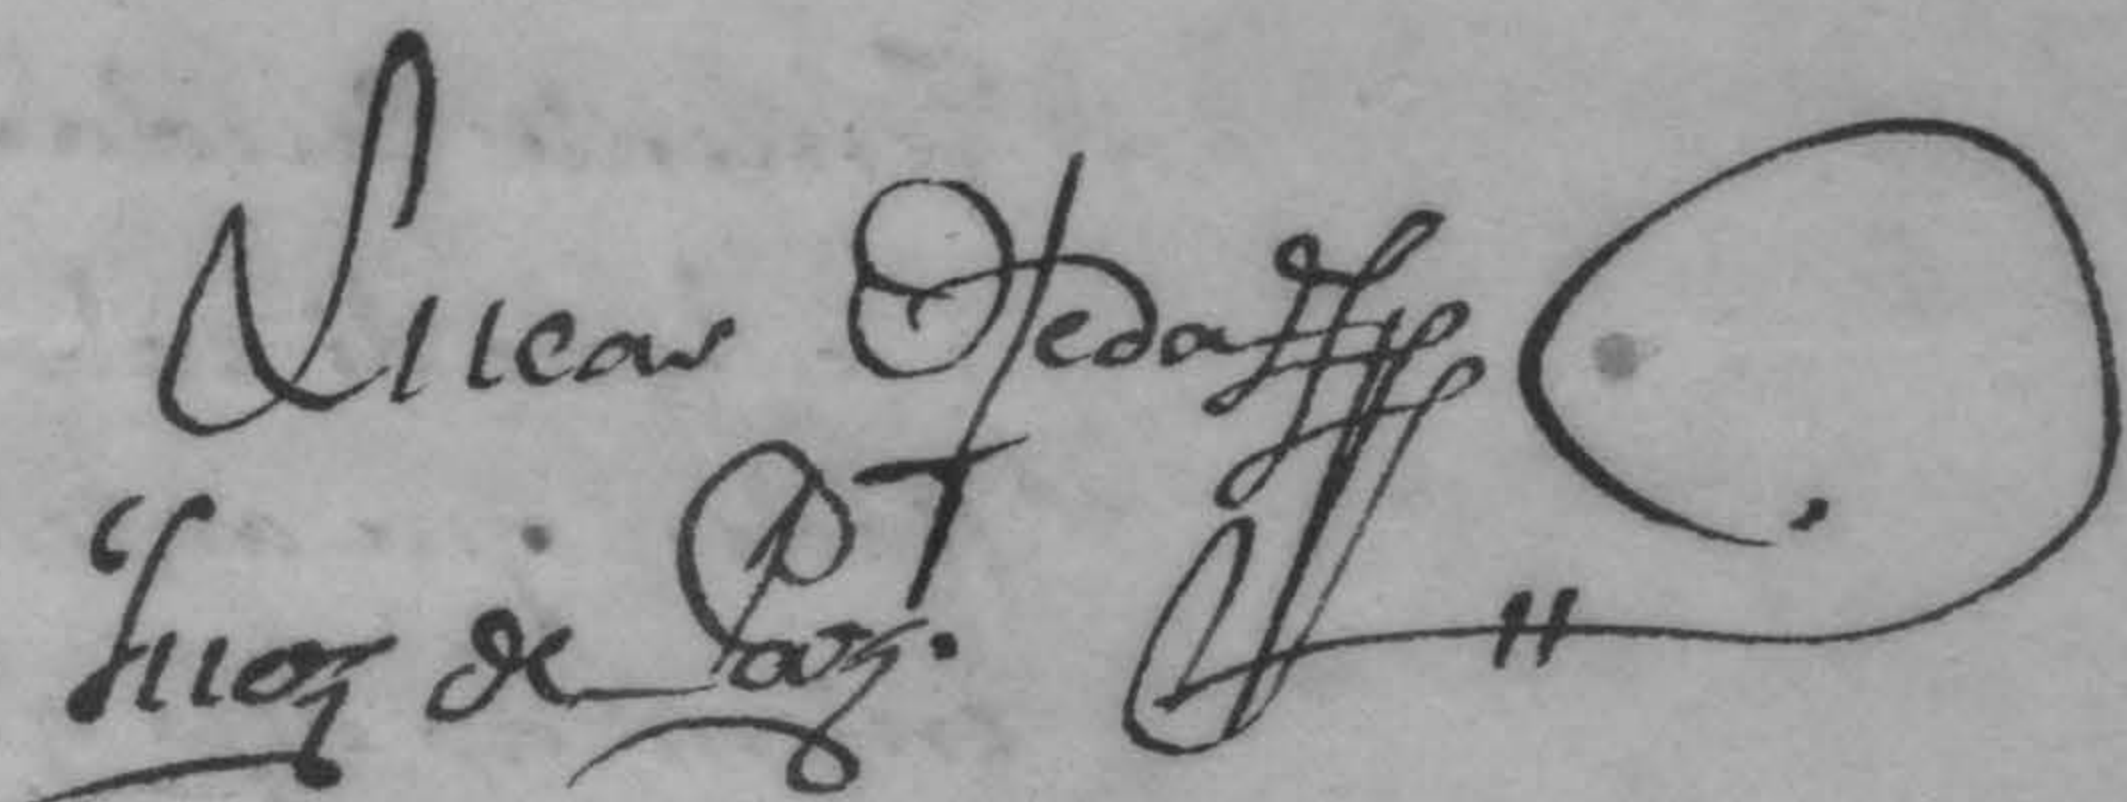 Lucas Ojeda
Juez de Paz.